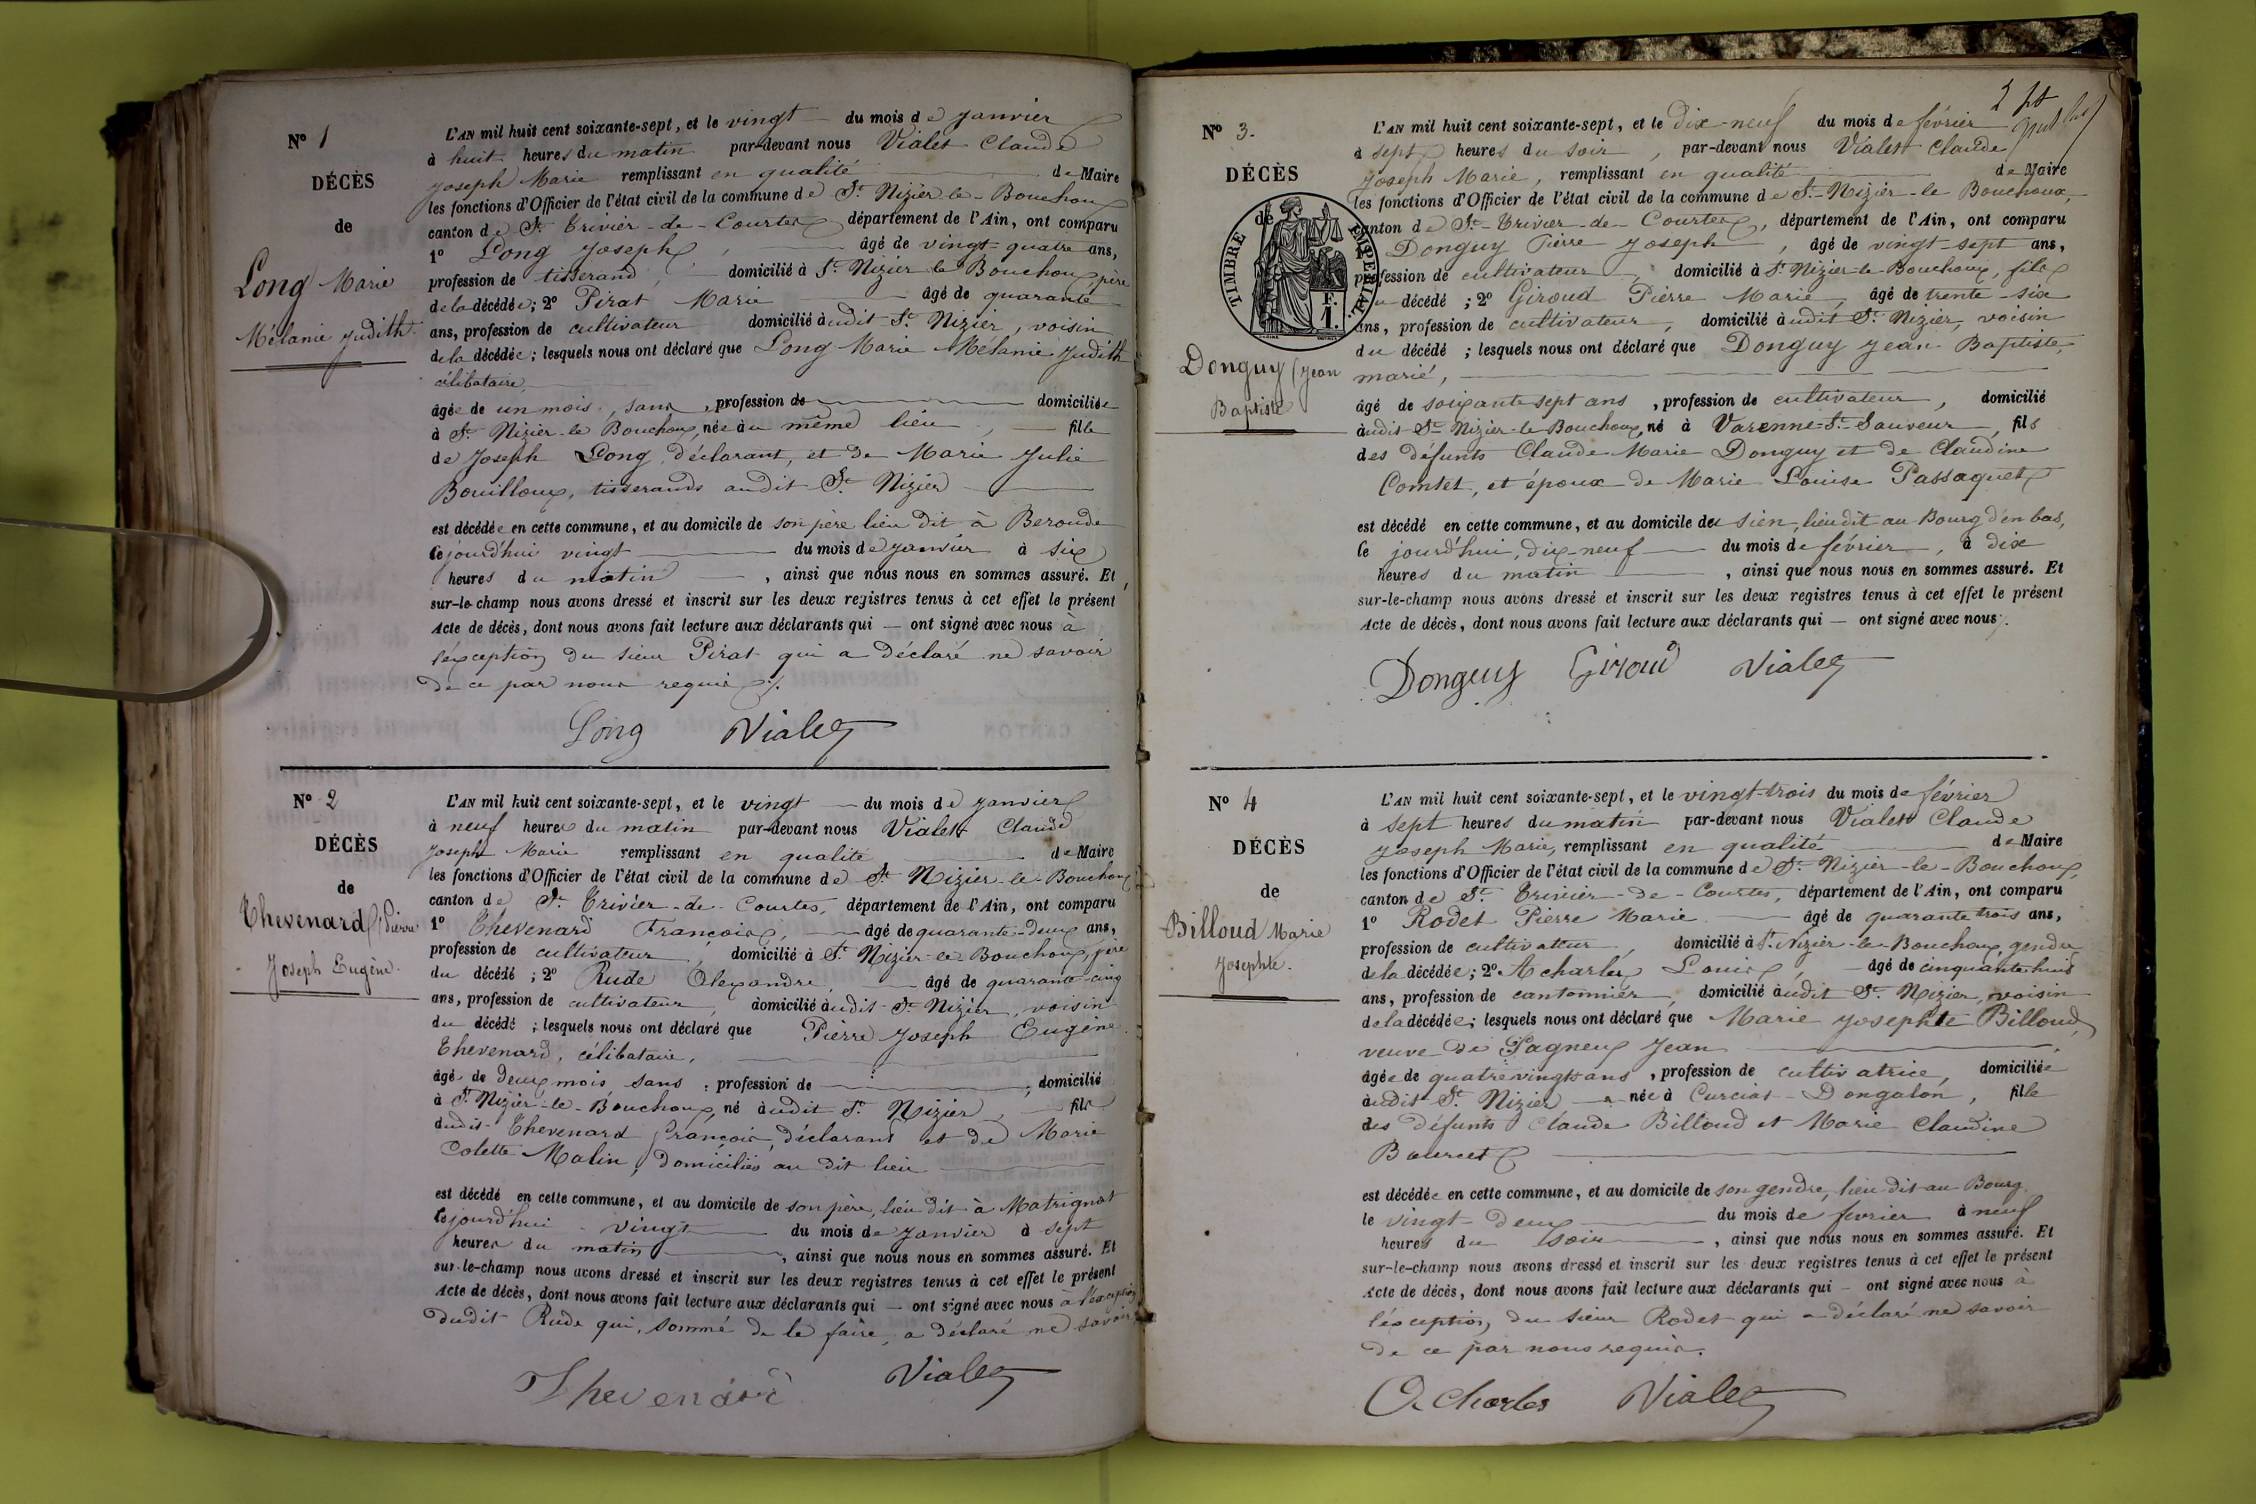 Nº 1
DÉCÈS
de
Long Marie
Mélanie Judith.
L'AN mil huit cent soixante-sept, et le vingt du mois de Janvier
à huit heures du matin par-devant nous Vialet Claude
Joseph Marie remplissant en qualité de Maire
les fonctions d'Officier de l'état civil de la commune de St. Nizier-le-Bouchoux
canton de St. Trivier-de-Courtes, département de l'Ain, ont comparu
1º Long Joseph, âgé de vingt-quatre ans,
profession de tisserand, domicilié à St. Nizier-le-Bouchoux, père
de la décédée; 2º Pirat Marie âgé de quarante
ans, profession de cultivateur domicilié àudit St. Nizier, voisin
de la décédée; lesquels nous ont déclaré que Long Marie Mélanie Judith
célibataire,
âgée de un mois, sans, profession de domiciliée
à St. Nizier-le-Bouchoux, née àu même lieu, fille
de Joseph Long, déclarant, et de Marie Julie
Bouilloux, tisserands audit St. Nizier
est décédée en cette commune, et au domicile de son père lieu dit à Beroude
le jourd'hui vingt du mois de Janvier à six
heures du matin, ainsi que nous nous en sommes assuré. Et
sur-le-champ nous avons dressé et inscrit sur les deux registres tenus à cet effet le présent
Acte de décès, dont nous avons fait lecture aux déclarants qui — ont signé avec nous à
l'exception du sieur Pirat qui a déclaré ne savoir
de ce par nous requis ./.
Long Vialet
Nº 2
DÉCÈS
de
Thevenard Pierre
Joseph Eugène.
L'AN mil huit cent soixante-sept, et le vingt du mois de Janvier
à neuf heures du matin par-devant nous Vialet Claude
Joseph Marie remplissant en qualité de Maire
les fonctions d'Officier de l'état civil de la commune de St. Nizier-le-Bouchoux
canton de St. Trivier-de-Courtes, département de l'Ain, ont comparu
1º Thevenard François, âgé de quarante-deux ans,
profession de cultivateur, domicilié à St. Nizier-le-Bouchoux, père
du décédé; 2º Rude Alexandre, âgé de quarante-cinq
ans, profession de cultivateur, domicilié àudit St. Nizier, voisin
du décédé; lesquels nous ont déclaré que Pierre Joseph Eugène
Thevenard, célibataire,
âgé de deux mois sans, profession de, domicilié
à St. Nizier-le-Bouchoux, né àudit St. Nizier, fils
dudit Thevenard François, déclarant et de Marie
Colette Malin, domiciliés au dit lieu
est décédé en cette commune, et au domicile de son père, lieu dit à Matrignat
le jourd'hui vingt du mois de Janvier à sept
heures du matin, ainsi que nous nous en sommes assuré. Et
sur-le-champ nous avons dressé et inscrit sur les deux registres tenus à cet effet le présent
Acte de décès, dont nous avons fait lecture aux déclarants qui — ont signé avec nous à l'exception
dudit Rude qui, sommé de le faire, a déclaré ne savoir
Thevenard Vialet
Nº 3.
DÉCÈS
de
TIMBRE IMPERIAL
F.
1.
Donguy Jean
Baptiste
L'AN mil huit cent soixante-sept, et le Dix-neuf du mois de février
à sept heures du soir, par-devant nous Vialet Claude
Joseph Marie, remplissant en qualité de Maire
les fonctions d'Officier de l'état civil de la commune de St. Nizier-le Bouchoux,
canton de St. Trivier-de-Courtes, département de l'Ain, ont comparu
Donguy Pierre Joseph, âgé de vingt-sept ans,
profession de cultivateur, domicilié à St. Nizier-le-Bouchoux, fils
du décédé; 2º Giroud Pierre Marie, âgé de trente-six
ans, profession de cultivateur, domicilié àudit St. Nizier, voisin
du décédé; lesquels nous ont déclaré que Donguy Jean Baptiste,
marié,
âgé de soixante sept ans, profession de cultivateur, domicilié
àudit St. Nizier-le-Bouchoux, né à Varenne-St. Sauveur, fils
des défunts Claude Marie Donguy et de Claudine
Comtet, et époux de Marie Louise Passaquet
est décédé en cette commune, et au domicile du sien, lieu dit au Bourg d'en bas,
le jourd'hui, dix-neuf du mois de février, à dix
heures du matin, ainsi que nous nous en sommes assuré. Et
sur-le-champ nous avons dressé et inscrit sur les deux registres tenus à cet effet le présent
Acte de décès, dont nous avons fait lecture aux déclarants qui — ont signé avec nous.
Donguy Giroud Vialet
Nº 4
DÉCÈS
de
Billoud Marie
Josephte.
L'AN mil huit cent soixante-sept, et le vingt-trois du mois de février
à sept heures du matin par-devant nous Vialet Claude
Joseph Marie, remplissant en qualité de Maire
les fonctions d'Officier de l'état civil de la commune de St. Nizier-le-Bouchoux,
canton de St. Trivier-de-Courtes, département de l'Ain, ont comparu
1º Rodet Pierre Marie âgé de quarante trois ans,
profession de cultivateur, domicilié à St. Nizier-le-Bouchoux gendre
de la décédée; 2º Acharles Louis, âgé de cinquante huit
ans, profession de cantonnier, domicilié àudit St. Nizier, voisin
de la décédée; lesquels nous ont déclaré que Marie Josephte Billoud,
veuve de Pagneux Jean
âgée de quatre vingts ans, profession de cultivatrice, domiciliée
àudit St. Nizier née à Curciat-Dongalon, fille
des défunts Claude Billoud et Marie Claudine
Bourcet
est décédée en cette commune, et au domicile de son gendre, lieu dit au Bourg
le vingt deux du mois de février à neuf
heures du soir, ainsi que nous nous en sommes assuré. Et
sur-le-champ nous avons dressé et inscrit sur les deux registres tenus à cet effet le présent
Acte de décès, dont nous avons fait lecture aux déclarants qui — ont signé avec nous à
l'exception du sieur Rodet qui a déclaré ne savoir
de ce par nous requis.
Acharles Vialet